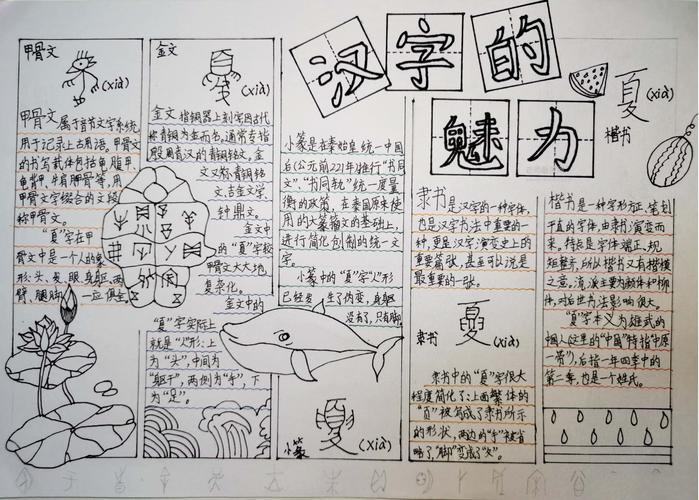 汉字的
魅力
甲骨文
(xià)
甲骨文 属于音节文字系统,
用于记录上古用语,甲骨文
的书写载体包括龟腹甲
龟背甲、牛肩胛骨等,用
甲骨文字缀合的文段
称甲骨文。
"夏"字在甲
骨文中是一个人的象
形:头、发、眼、身躯、两
臂、腿脚 一应俱全
金文
(xià)
金文 指铜器上刻字因古代
称青铜为金而名,通常专指
殷周青汉的青铜铭文,金
文又称:青铜铭
文、吉金文字、
钟鼎文。
金文中
的"夏"字较
甲骨文大大地
复杂化。
金文中的
"夏"字实际上
就是"人"形:上
为"头",中间为
"躯干",两侧为"手",下
为"足"。
小篆是在秦始皇统一中国
后(公元前221年)推行"书同
文","书同轨"统一度量
衡的政策,在秦国原来使
用的大篆籀文的基础上,
进行简化创制的统一文
字。
小篆中的"夏"字"人"形
已经发 生了伪变,身躯
没有了,只有脚
小篆
夏
(xià)
隶书是汉字的一种字体,
也是汉字书法中重要的一
种,更是汉字演变史上的
重要篇张,甚至可以说是
最重要的一张。
隶书
夏
(xià)
隶书中的"夏"字很大
程度简化了:上面繁体的
"页"被写成了隶书所示
的形状,两边的"手"被省
略了,"脚"变成了"夂"。
夏
(xià)
楷书
楷书是一种字形方正,笔划
平直的字体,由隶书演变而
来,特点是字体端正、规
矩整齐,所以楷书又有楷模
之意,流派主要为颜体和柳
体,对后世书法影响很大。
"夏"字本义为雄武的
中国人(这里的"中国"特指"中原
一带"),后指一年四季中的
第二季,也是个姓氏。